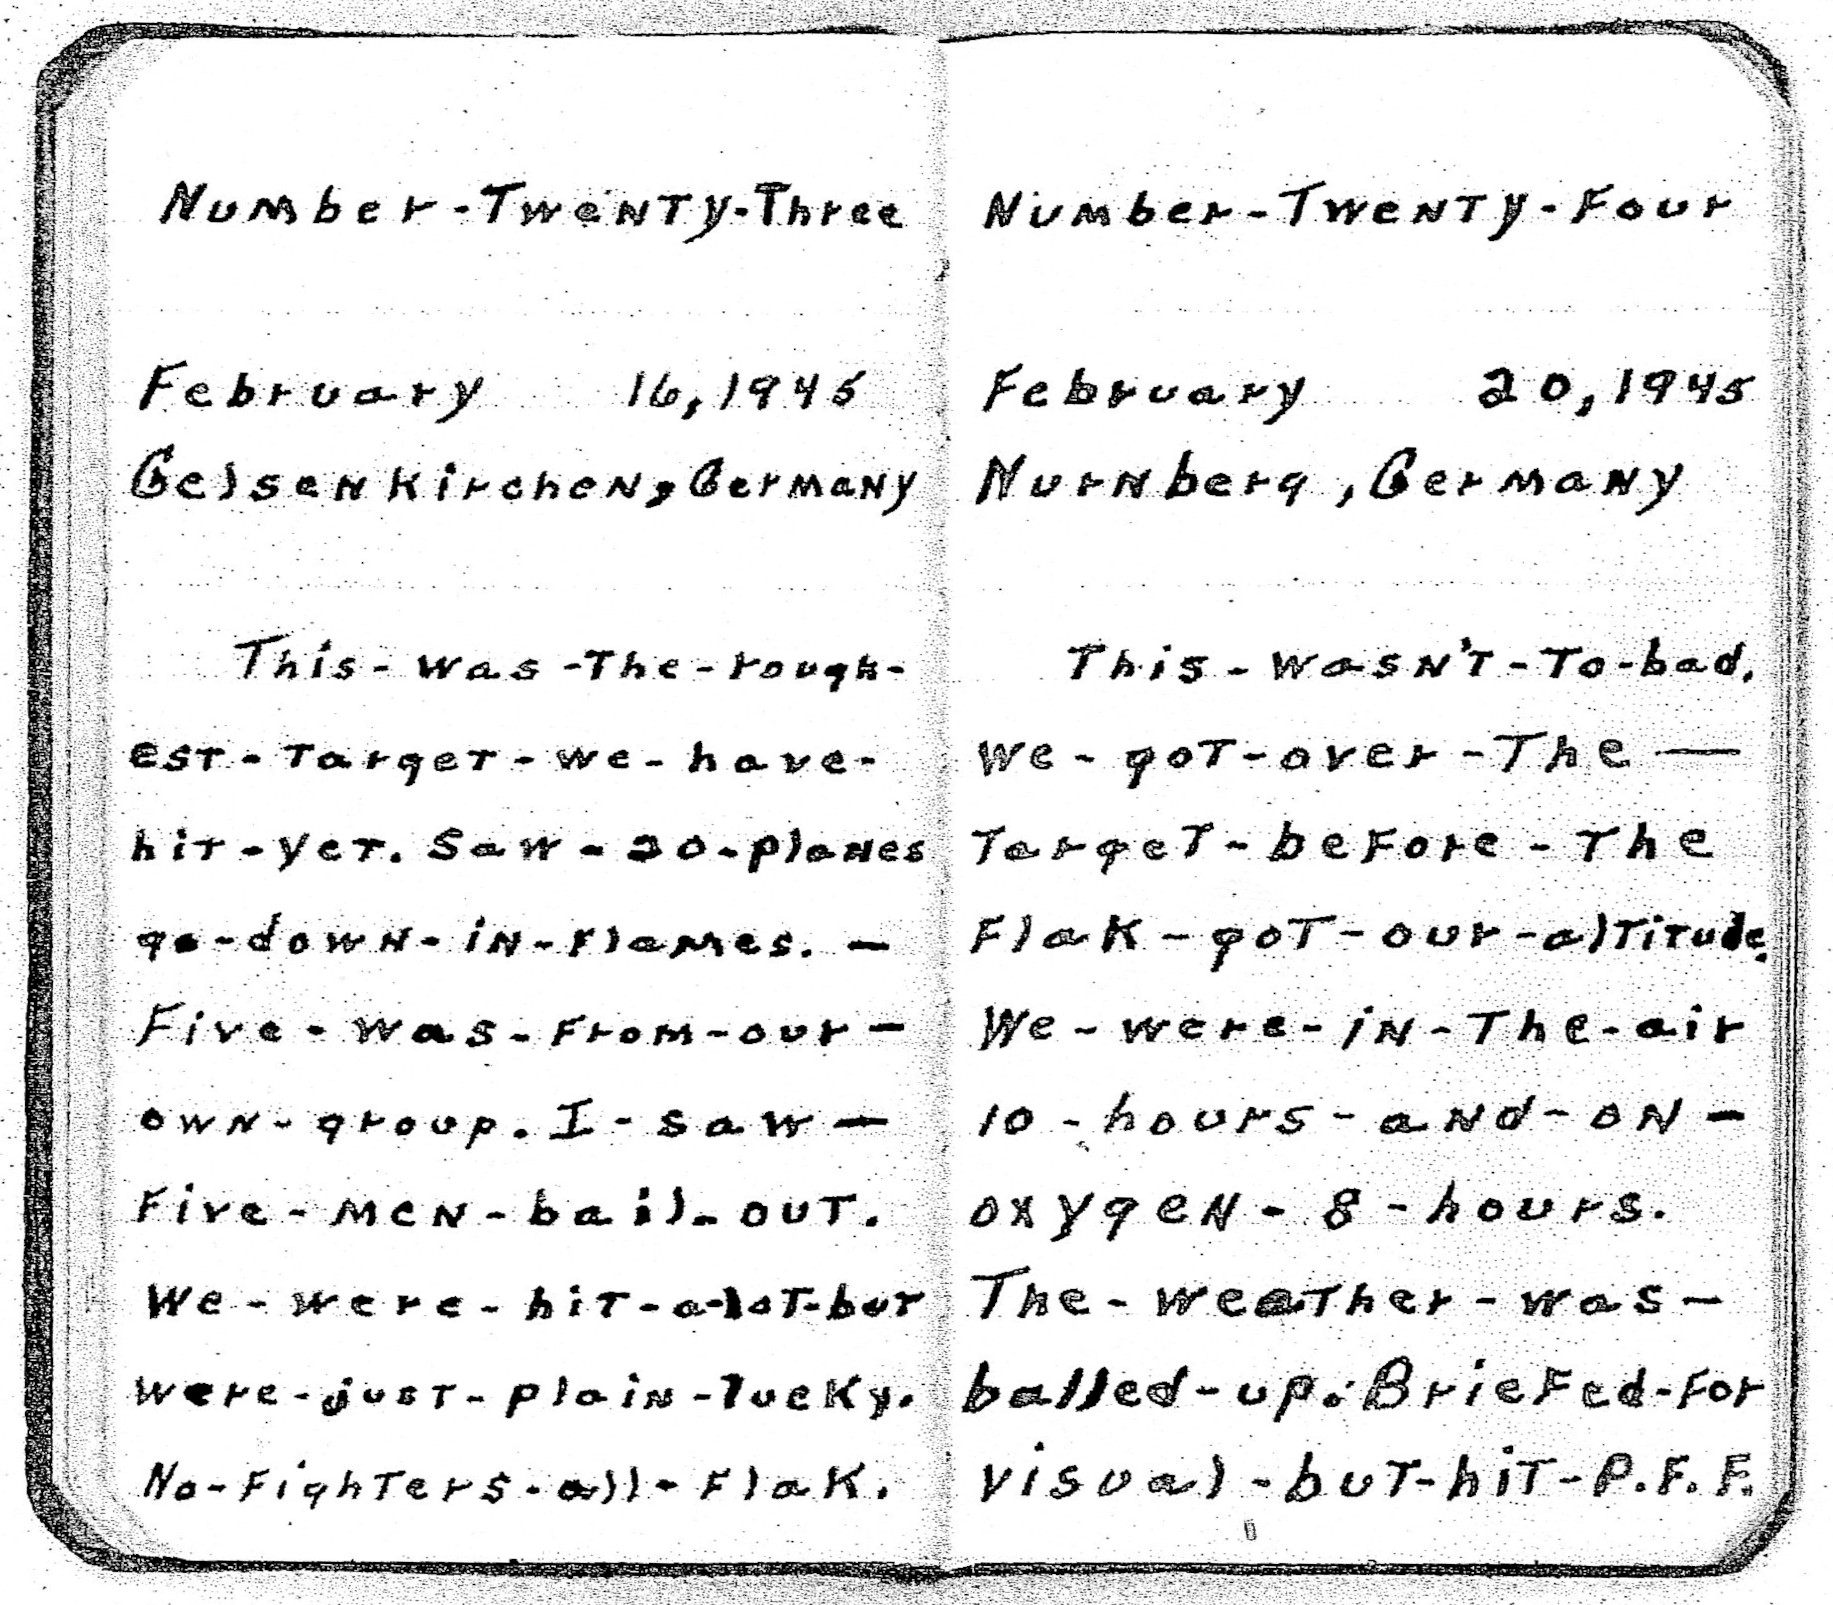 Number-Twenty-Three
February 16, 1945
Gelsenkirchen, Germany
This-was-The-rough-
est-Target-we-have-
hit-yet. Saw-20-planes
go-down-in-flames.—
Five-was-from-our—
own-group. I-saw—
Five-men-bail-out.
We-were-hit-a-lot-but
were-just-plain-lucky.
No-Fighters-all-Flak.
Number-Twenty-Four
February 20, 1945
Nurnberg, Germany
This-wasn't-To-bad.
We-got-over-The—
Target-before-The
Flak-got-our-altitude.
We-were-in-The-air
10-hours-and-on-
oxygen-8-hours.
The-weather-was-
balled-up. Briefed-For
visual-but-hit-P.F.F.